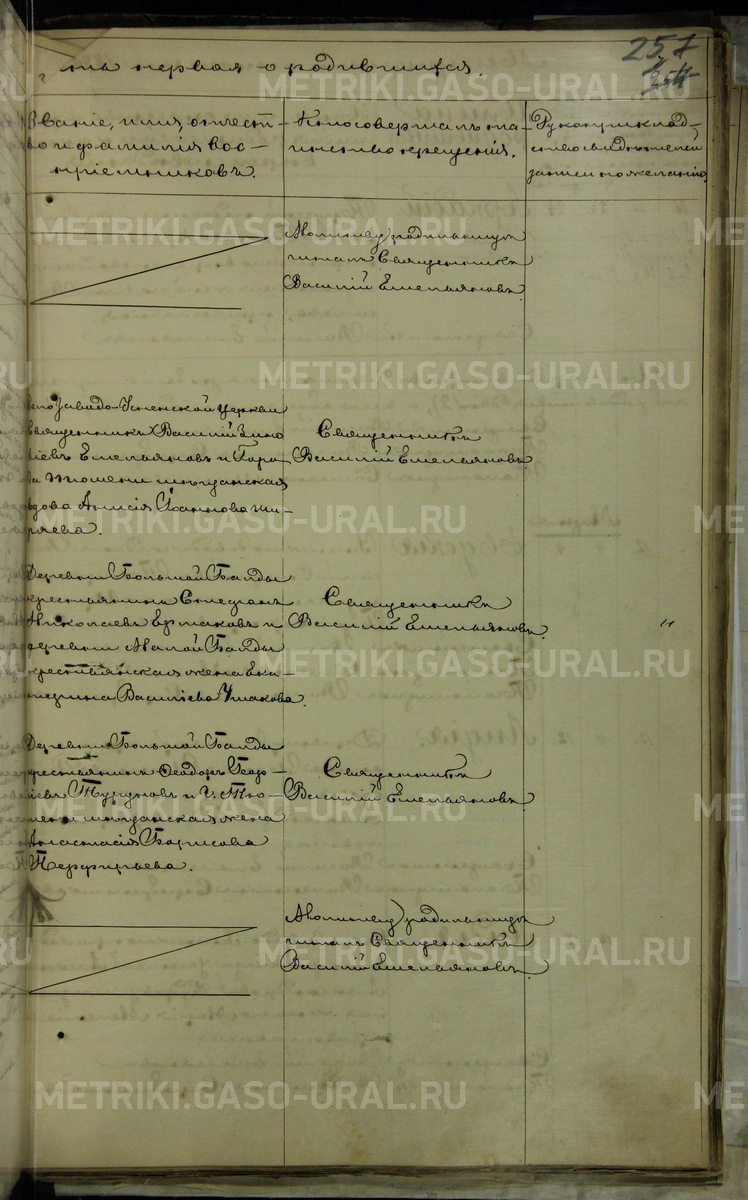 257
254
та первая о родившихся.
Званіе, имя, отчест-
во и фамилія вос-
пріемниковъ.
Кто совершалъ та-
инство крещенія.
Рукоприклад-
ство свидѣтелей
записи по желанію.
Молитву родильницы
читалъ Священникъ
Василій Емельяновъ.
Заводо-Успенской церкви
Священникъ Василій Зино
віевъ Емельяновъ и Горо
да Тюмени мѣщанская
вдова Анисія Іоаннова Ши-
ряева.
Священникъ
Василій Емельяновъ.
Деревни Большой Балды
крестьянинъ Стефанъ
Николаевъ Ермаковъ и
деревни Малой Балды
крестьянская жена Ека-
терина Васильева Ушакова.
Священникъ
Василій Емельяновъ.
Деревни Большой Балды
крестьянинъ Ѳеодоръ Геор-
гіевъ и г. Тю-
мени мѣщанская жена
Анастасія Борисова
Перфирьева.
Священникъ
Василій Емельяновъ.
Молитву родильницы
читалъ Священникъ
Василій Емельяновъ.
METRIKI.GASO-URAL.RU